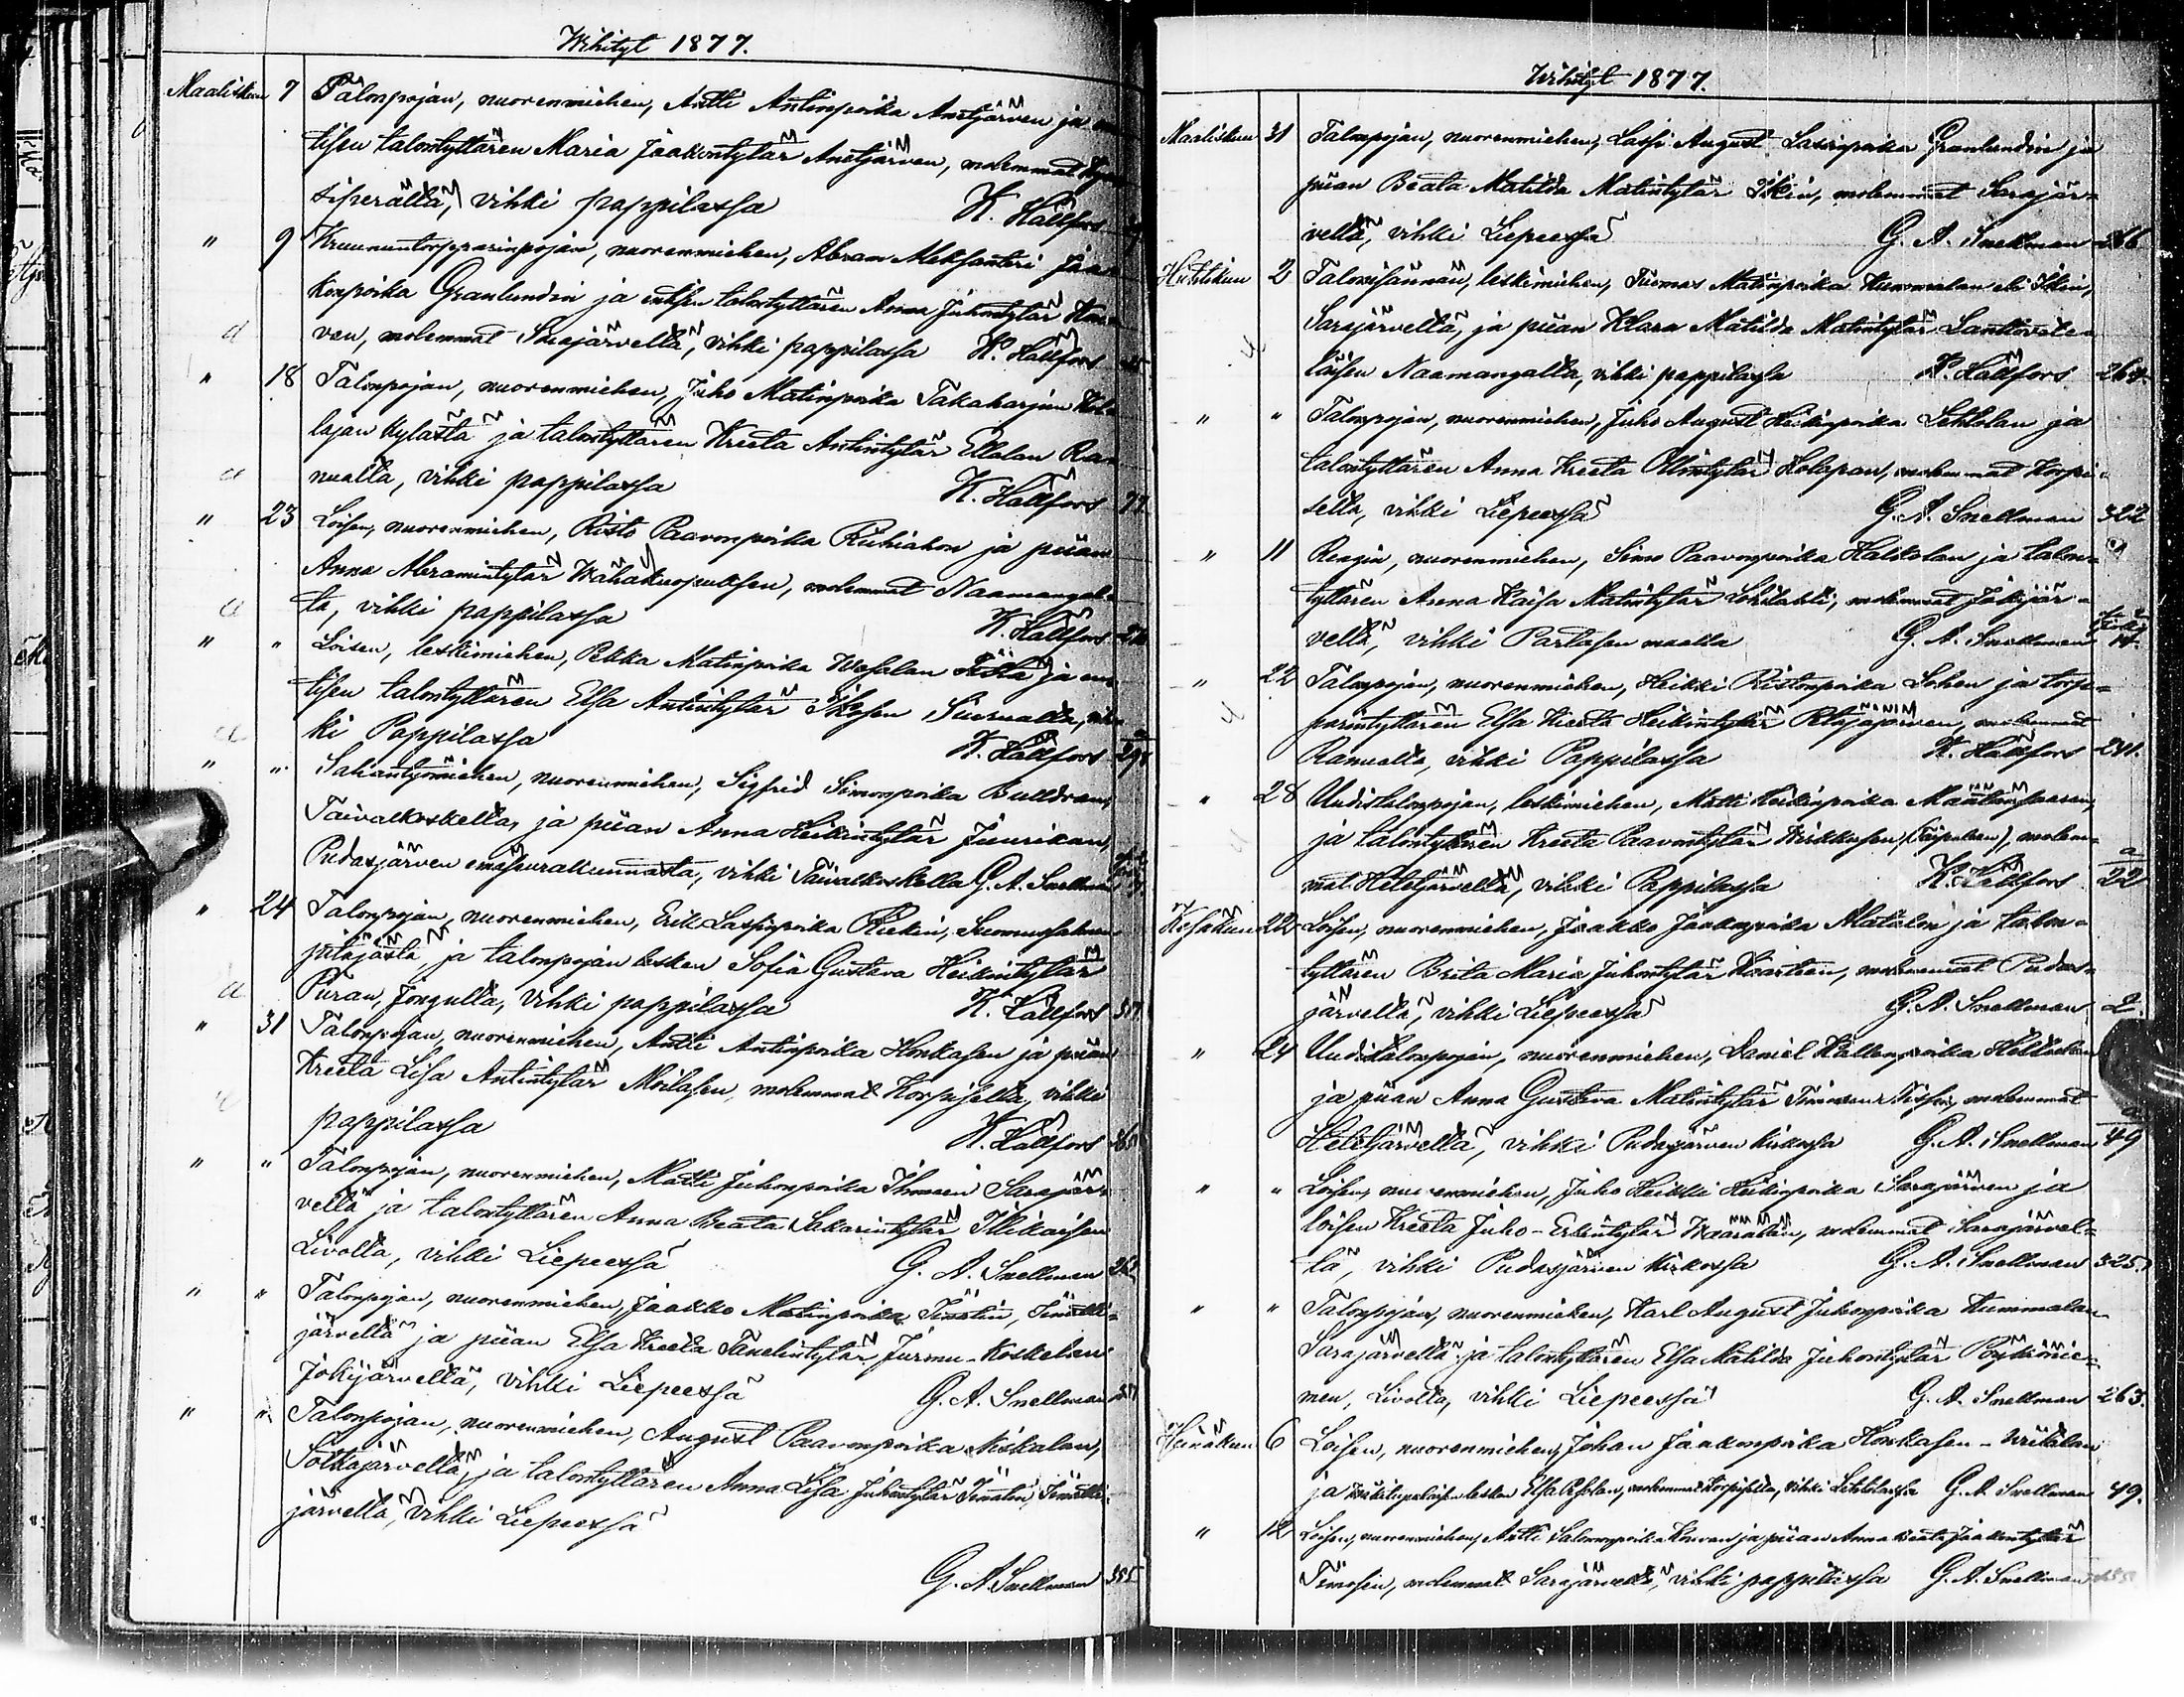 Wihityt 1877.
Maaliskuun 7 Talonpojan, nuorenmiehen, Antti Antinpoika Anetjärven ja
tisen talontyttären Maria Jaakontytär Anetjärven, molemmat
siperältä, vihki pappilassa K. Hällfors
" 9 Kruununtorpparinpojan, nuorenmiehen, Abram Aleksanteri Jaa-
konpoika Granlundin ja talontyttären Anna Juhontytär
ven, molemmat Sarajärveltä, vihki pappilassa K. Hällfors
" 18 Talonpojan, nuorenmiehen, Juho Matinpoika Takaharjun Kol-
lajan kylästä ja talontyttären Kreeta Antintytär Ellalan Ra-
nualta, vihki pappilassa K. Hällfors 77.
" 23 Loisen, nuorenmiehen, Risto Paavonpoika Riihiahon ja piian
Anna Abramintytär Wähäkuopuksen, molemmat Naamangal-
ta, vihki pappilassa K. Hällfors
" " Loisen, leskimiehen, Pekka Matinpoika ja en-
tisen talontyttären Elsa Antintytär Ikosen Siurualta, vih-
ki Pappilassa K. Hällfors
" " Sahantyömiehen, nuorenmiehen, Sigfrid Simonpoika
Taivalkoskelta, ja piian Anna Heikintytär Juurikan,
Pudasjärven emäseurakunnasta, vihki Taivalkoskella G. A. Snellman
" 24 Talonpojan, nuorenmiehen, Erik Lassinpoika Riekin, Suomussalmen
pitäjästä, ja talonpojan lesken Sofia Gustava Heikintytär
Puran, Jongulta, vihki pappilassa K. Hällfors
" 31 Talonpojan, nuorenmiehen, Antti Antinpoika Honkasen ja piian
Kreeta Lisa Antintytär Moilasen, molemmat Korpiselta, vihki
pappilassa K. Hällfors
" " Talonpojan, nuorenmiehen, Matti Juhonpoika Ihmisen Sarajär-
veltä ja talontyttären Anna Beata Sakarintytär Illikaisen
Livolta, vihki Liepeessä G. A. Snellman
" " Talonpojan, nuorenmiehen, Jaakko Matinpoika
järveltä ja piian Elsa Kreeta Tanelintytär Jurmu-Koskelan
Jokijärveltä, vihki Liepeessä G. A. Snellman
" " Talonpojan, nuorenmiehen, August Paavonpoika Niskalan,
Sotkajärveltä, ja talontyttären Anna Lisa Juhontytär
järveltä, vihki Liepeessä
G. A. Snellman 355
Wihityt 1877.
Maaliskuun 31 Talonpojan, nuorenmiehen, Lassi August Lassinpoika Granlundin ja
piian Beata Matilda Matintytär Ikin, molemmat Sarajär-
veltä, vihki Liepeessä G. A. Snellman 266
Huhtikuun 2 Talonisännän, leskimiehen, Tuomas Matinpoika Kummalan eli Ikin,
Sarajärveltä, ja piian Klara Matilda Matintytär
läisen Naamangalta, vihki pappilassa K. Hällfors 264.
" " Talonpojan, nuorenmiehen, Juho August Heikinpoika Lehtolan ja
talontyttären Anna Kreeta Ollintytär Holapan, molemmat Korpi-
selta, vihki Liepeessä G. A. Snellman 322
" 11 Rengin, nuorenmiehen, Simo Paavonpoika Halkolan ja talon-
tyttären Anna Kaisa Matintytär Lohilahti, molemmat Jokijär-
veltä, vihki Partasen maalla G. A. Snellman
" 22 Talonpojan, nuorenmiehen, Heikki Ristonpoika Lohen ja torp-
parintyttären Elsa Kreeta Heikintytär Petäjäjärven, molemmat
Ranualta, vihki Pappilassa K. Hällfors 241.
" 28 Uudistalonpojan, leskimiehen, Matti Heikinpoika
ja talontyttären Kreeta Paavontytär Wirkkusen, molem-
mat Hetejärveltä, vihki Pappilassa K. Hällfors 22
Kesäkuun 22 Loisen, nuorenmiehen, Jaakko Jaakonpoika Matalan ja talon-
tyttären Brita Maria Juhontytär molemmat Pudas-
järveltä, vihki Liepeessä G. A. Snellman 2.
" 24 Uudistalonpojan, nuorenmiehen, Daniel
ja piian Anna Gustava Matintytär molemmat
Hetejärveltä, vihki Pudasjärven kirkossa G. A. Snellman 49
" " Loisen, nuorenmiehen, Juho Heikki Heikinpoika Sarajärven ja
loisen Kreeta Juho-Erkintytär molemmat Sarajärvel-
tä, vihki Pudasjärven kirkossa G. A. Snellman 325.
" " Talonpojan, nuorenmiehen, Karl August Juhonpoika Kummalan
Sarajärveltä ja talontyttären Elsa Matilda Juhontytär Pöykiönie-
men, Livolta, vihki Liepeessä G. A. Snellman 263.
Heinäkuun 6 Loisen, nuorenmiehen, Johan Jaakonpoika Honkasen-
ja lesken Elsa molemmat Korpiselta, vihki Lehtolassa G. A. Snellman 49.
" 12 Loisen, nuorenmiehen, Antti Salomonpoika ja piian Anna Beata Jaakontytär
Timosen, molemmat Sarajärveltä, vihki pappilassa G. A. Snellman